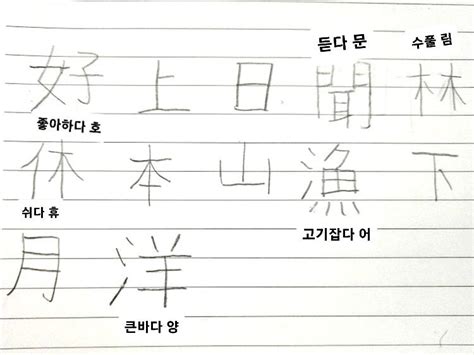 듣다 문 수풀 림
好 上 日 聞 林
좋아하다 호
休 本 山 漁 下
쉬다 휴 고기잡다 어
月 洋
큰바다 양